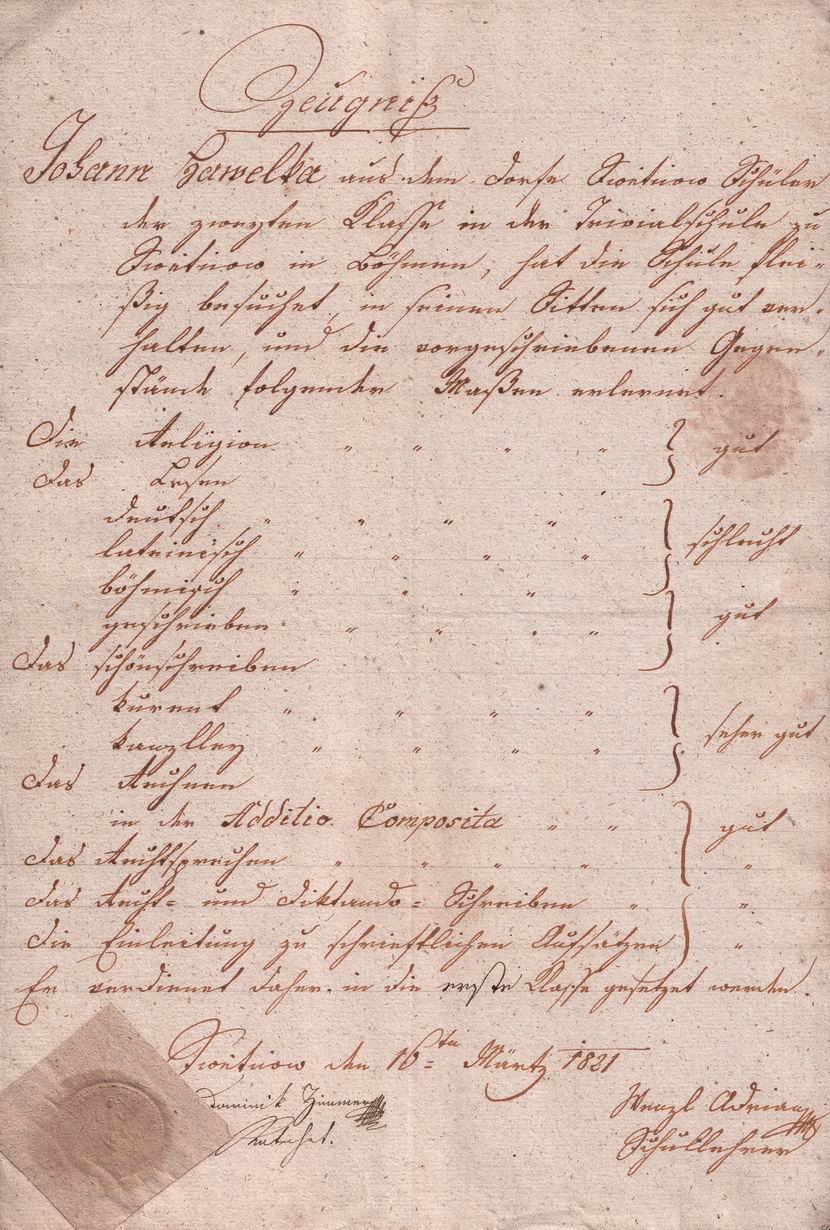 Zeugniß
Johann Hawelka aus dem Dorfe Swietnow Schüler
der zweyten Klasse in der Trivialschule zu
Swietnow in Böhmen, hat die Schule flei-
ßig besuchet, in seinen Sitten sich gut ver-
halten, und die vorgeschriebenen Gegen-
stände folgender Maßen erlernet.
Die Religion " " " " } gut
Das Lesen
deutsch " " " " } schlecht
lateinisch " " " "
böhmisch " " " } gut
geschrieben " " " "
Das schönschreiben
kurent " " " " } seher gut
kanzlley " " " "
Das Rechnen
in der Additio Composita " " } gut
Das Rechtsprechen " " " " "
Das Recht- und Diktando-Schreiben " } "
Die Einleitung zu schrieftlichen Aufsätzen "
Er verdienet daher in die erste Klasse gesetzet werden.
Swietnow den 16=ten Märtz 1821
Dominik Zimmer
Katechet.
Wenzl Adrian
Schullehrer